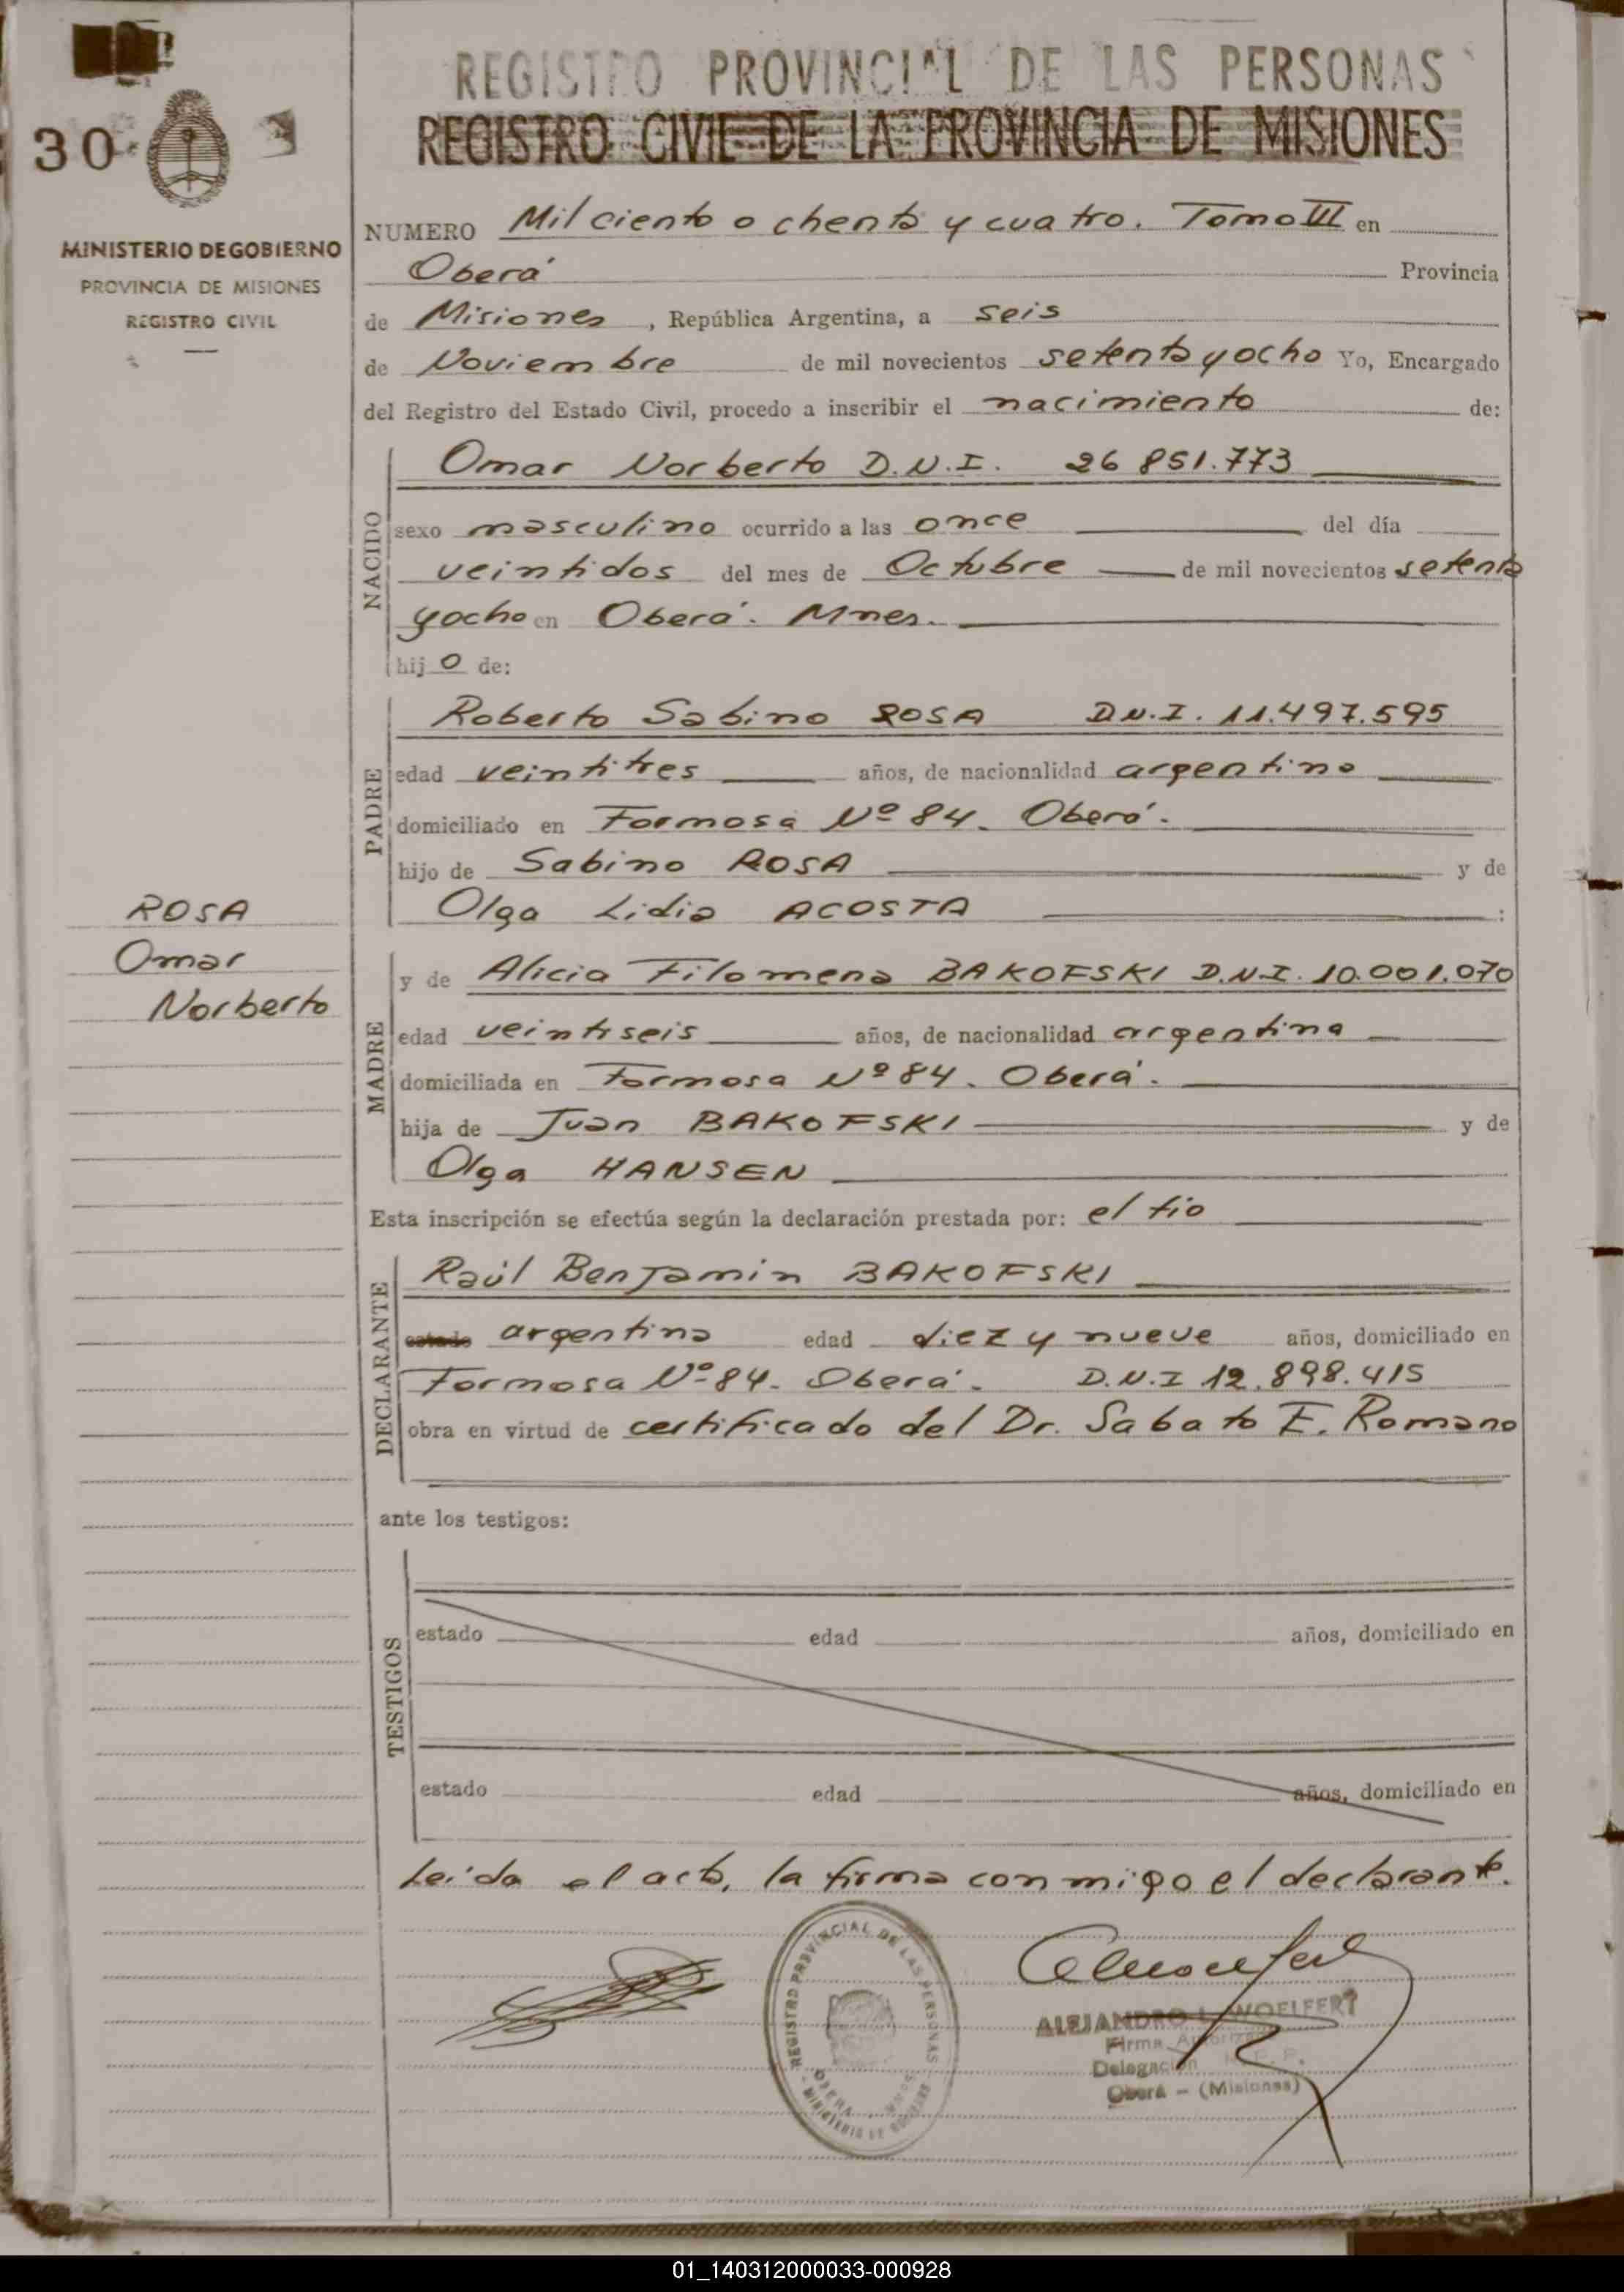 REGISTRO PROVINCIAL DE LAS PERSONAS
REGISTRO CIVIL DE LA PROVINCIA DE MISIONES
30
MINISTERIO DE GOBIERNO
PROVINCIA DE MISIONES
REGISTRO CIVIL
NUMERO Mil ciento ochenta y cuatro. Tomo III en
Oberá Provincia
de Misiones, República Argentina, a seis
de Noviembre de mil novecientos setenta y ocho Yo, Encargado
del Registro del Estado Civil, procedo a inscribir el nacimiento de:
NACIDO
Omar Norberto D.N.I. 26 851.773
sexo masculino ocurrido a las once del día
veintidos del mes de Octubre de mil novecientos setenta
y ocho en Oberá. Mnes.
hijo de:
PADRE
Roberto Sabino ROSA D.N.I. 11.497.595
edad veintitres años, de nacionalidad argentino
domiciliado en Formosa Nº 84. Oberá.
hijo de Sabino ROSA y de
Olga Lidia ACOSTA :
ROSA
Omar
Norberto
MADRE
y de Alicia Filomena BAKOFSKI D.N.I. 10.001.070
edad veintiseis años, de nacionalidad argentina
domiciliada en Formosa Nº 84. Oberá.
hija de Juan BAKOFSKI y de
Olga HANSEN
Esta inscripción se efectúa según la declaración prestada por: el tio
DECLARANTE
Raúl Benjamin BAKOFSKI
estado argentino edad diez y nueve años, domiciliado en
Formosa Nº 84. Oberá. D.N.I 12.898.415
obra en virtud de certificado del Dr. Sabato E. Romano
ante los testigos:
TESTIGOS
estado edad años, domiciliado en
estado edad años, domiciliado en
Leída el acta, la firma conmigo el declarante.
REGISTRO PROVINCIAL DE LAS PERSONAS
OBERA MNES
MINISTERIO DE GOBIERNO
ALEJANDRO L. WOELFERT
Firma Autorizada
Delegación R. P. P.
Oberá - (Misiones)
01_140312000033-000928